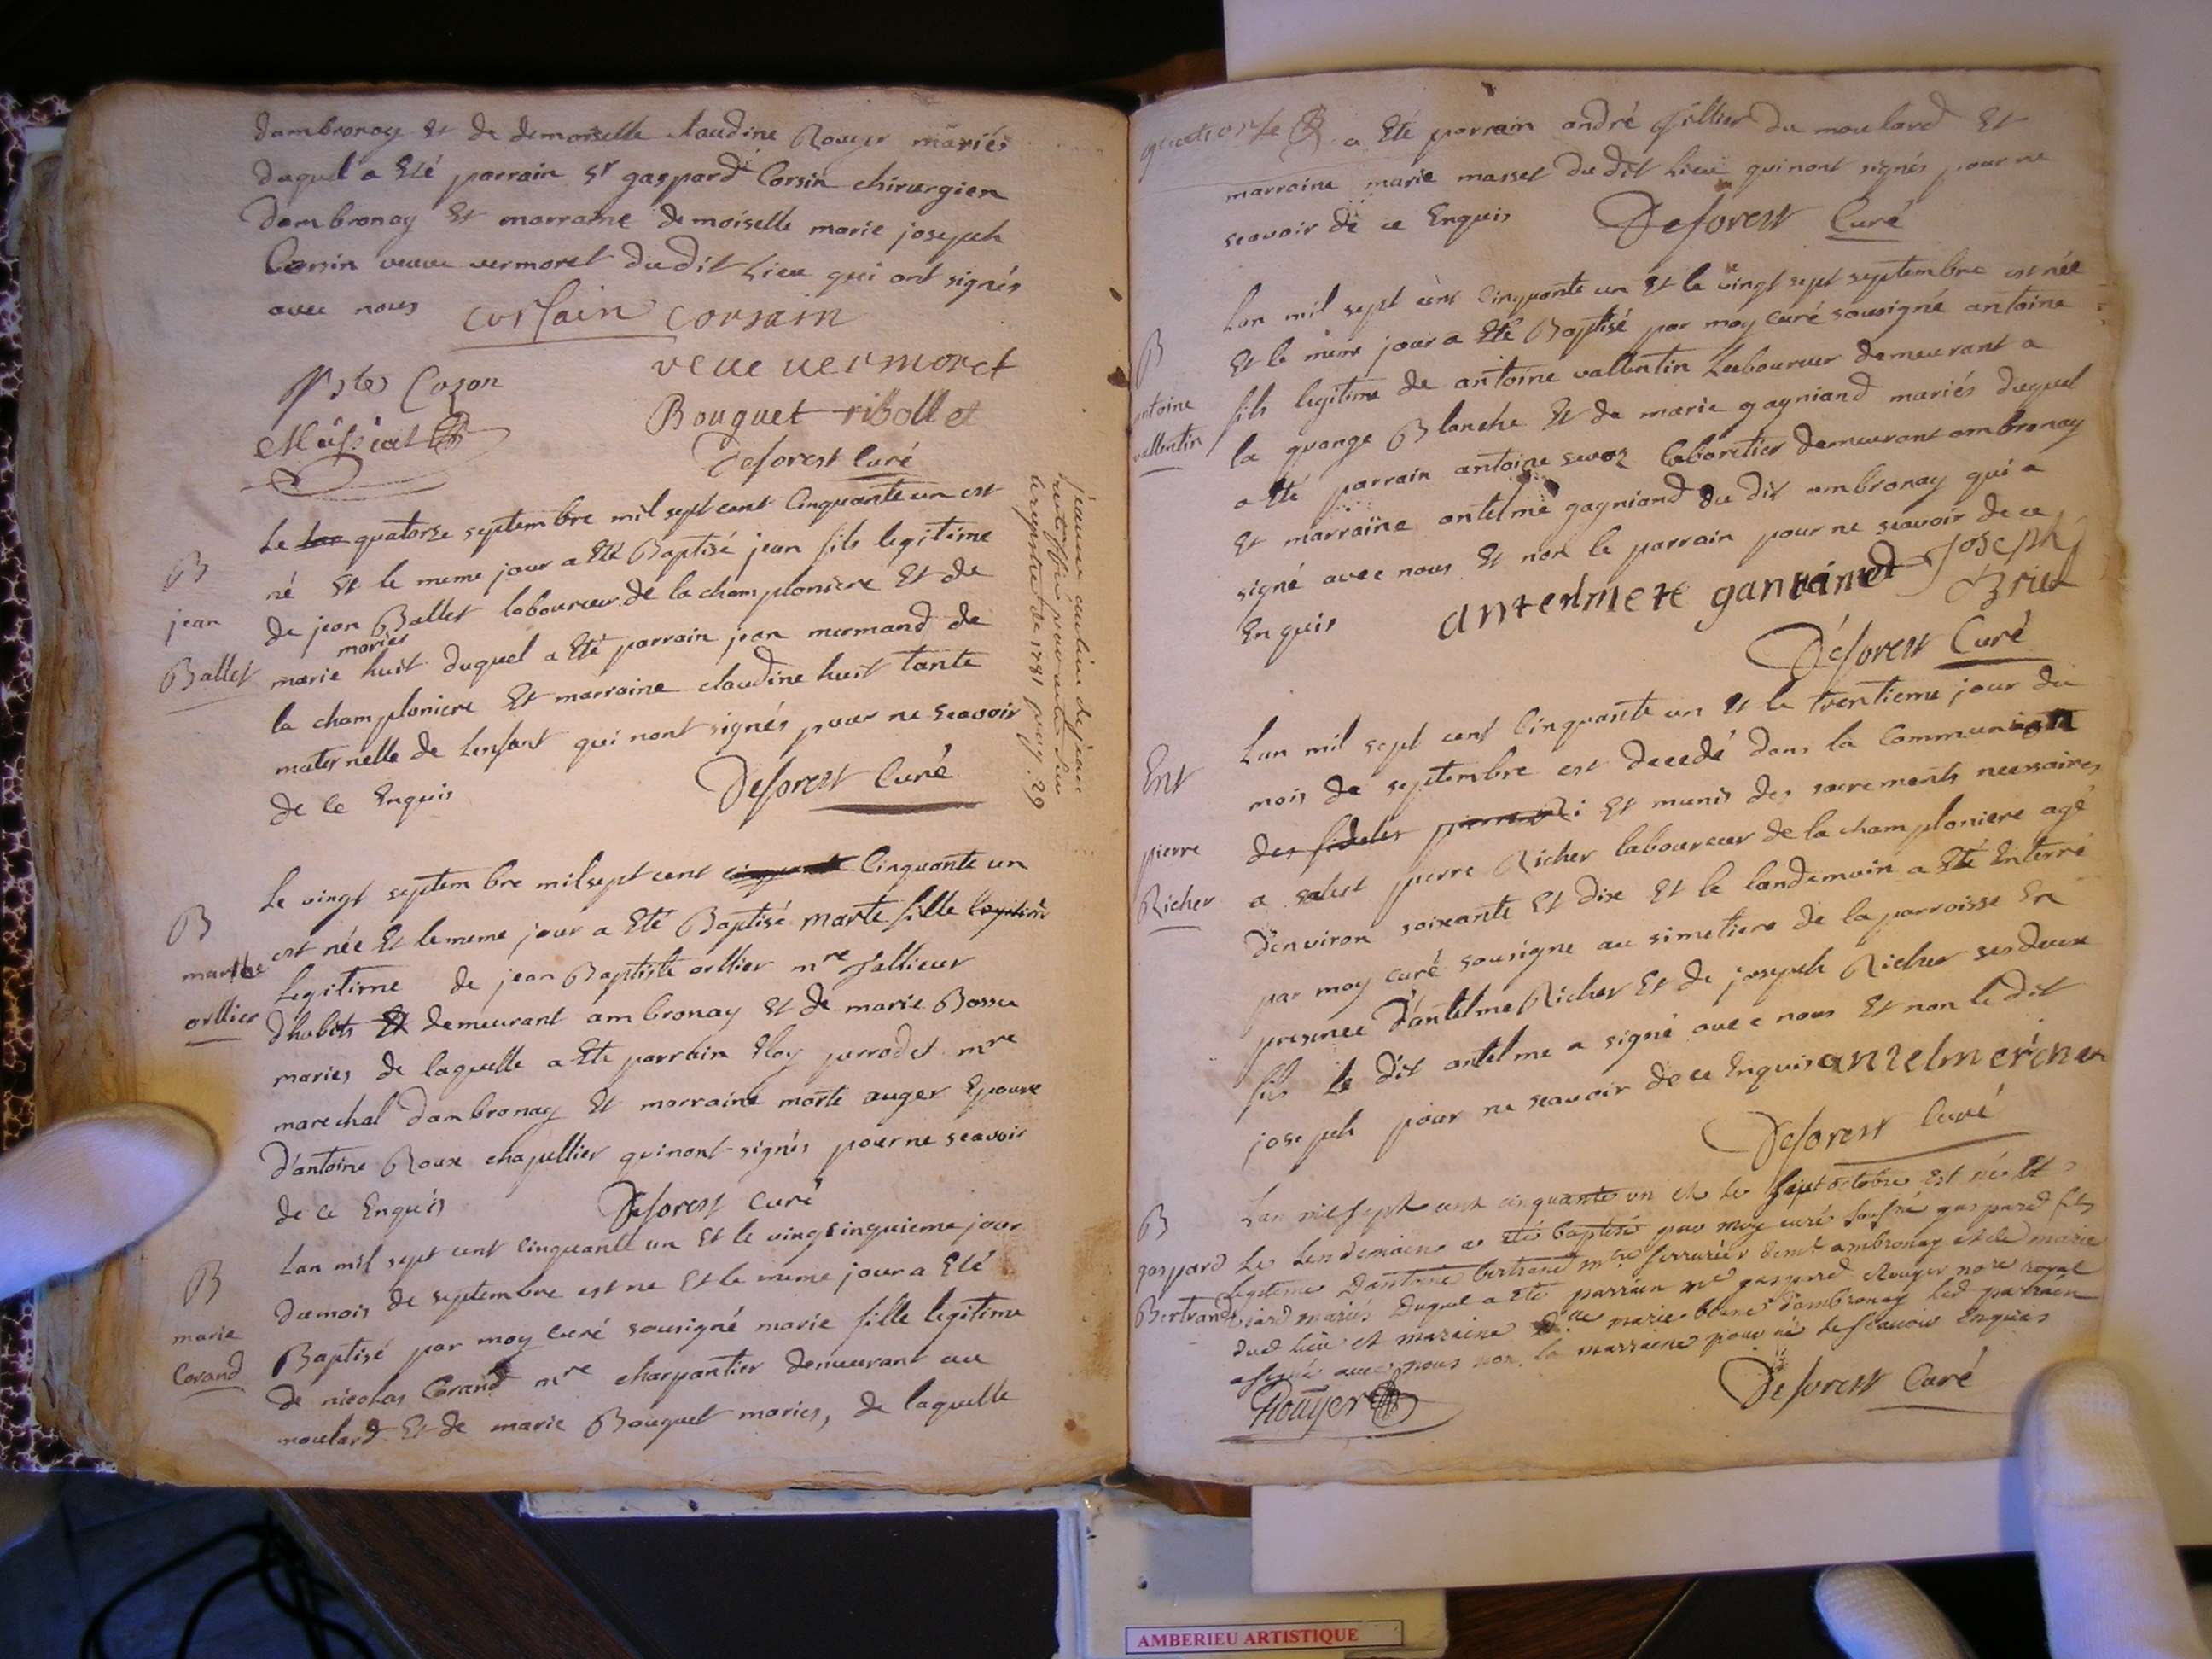 dambronay Et de demoiselle Claudine Rouyer mariés
duquel a Eté parrain Sr gaspard Corsin chirurgien
dambronay Et marraine demoiselle marie joseph
Corsin veuve vermoret du dit Lieu qui ont signés
avec nous corsain corsain
veue uermoret
Cozon
Bouquet ribollet
Messiat
Deforest Curé
B
jean
Ballet
Le quatorze septembre mil sept cent Cinquante un est
né Et le meme jour a Eté Baptisé jean fils legitime
de jean Ballet laboureur de la champloniere Et de
mariés
marie huit duquel a Eté parrain jean mermand de
la champloniere Et marraine claudine huit tante
maternelle de Lenfant qui nont signés pour ne scavoir
de ce Enquis Deforest Curé
le registre de 1781 pag. 29
B
marthe
orllier
Le vingt septembre mil sept cent cinquante Cinquante un
est née Et le meme jour a Eté Baptisé marte fille legitim
Legitime de jean Baptiste orllier mre Tallieur
dhabits Et demeurant ambronay Et de marie Bossu
maries de laquelle a Eté parrain Eloy perrodet mre
marechal dambronay Et marraine marte auger Epouse
d'antoine Roux chapellier qui nont signés pour ne scavoir
de ce Enquis Deforest Curé
B
marie
Corand
Lan mil sept cent cinquante un Et le vingt cinquieme jour
du mois de septembre est ne Et le meme jour a Eté
Baptisé par moy curé sousigné marie fille legitime
de nicolas Corand mre charpantier demeurant au
moulard Et de marie Bouquet maries, de laquelle
quatorze a Eté parrain andré fillier du moulard Et
marraine marie masset du dit Lieu qui nont signés pour ne
scavoir de ce Enquis Deforest Curé
B
antoine
vallentin
Lan mil sept cent Cinquante un Et le vingt sept septembre est née
Et le meme jour a Eté Baptisé par moy curé sousigné antoine
fils legitime de antoine vallentin Laboureur demeurant a
la grange Blanche Et de marie gagniand mariés duquel
a Eté parrain antoine savoz Cabaretier demeurant ambronay
Et marraine antelme gagniand du dit ambronay qui a
signé avec nous Et non le parrain pour ne scavoir de ce
Enquis antermete Joseph
Deforest Curé
Ent
pierre
Richer
Lan mil sept cent Cinquante un Et le trentieme jour du
mois de septembre est decedé dans la Communion
des fideles Et munis des sacrements necessaires
a salut pierre Richer laboureur de la champloniere agé
denviron soixante Et dix Et le landemain a Eté Enterré
par moy curé sousigne au simetiere de la parroisse En
presence d'antelme Richer Et de joseph Richer ses deux
fils le dit antelme a signé avec nous Et non le dit
joseph pour ne scavoir de ce Enquis antelmericher
Deforest Curé
B
gaspard
Bertrand
Lan mil sept cent cinquante un et le sept octobre est né Et
Le Lendemain a eté baptisé par moy curé sousné gaspard fils
legitime Dantoine bertrand mtre serrurier demt ambronay et de marie
mariés duquel a eté parrain me gaspard Rouyer nore royal
dud lieu et maraine dlle marie dambronay led parrain
a signé avec nous non la marraine pour ne le scavoir Enquis
Rouyer Deforest Curé
AMBERIEU ARTISTIQUE